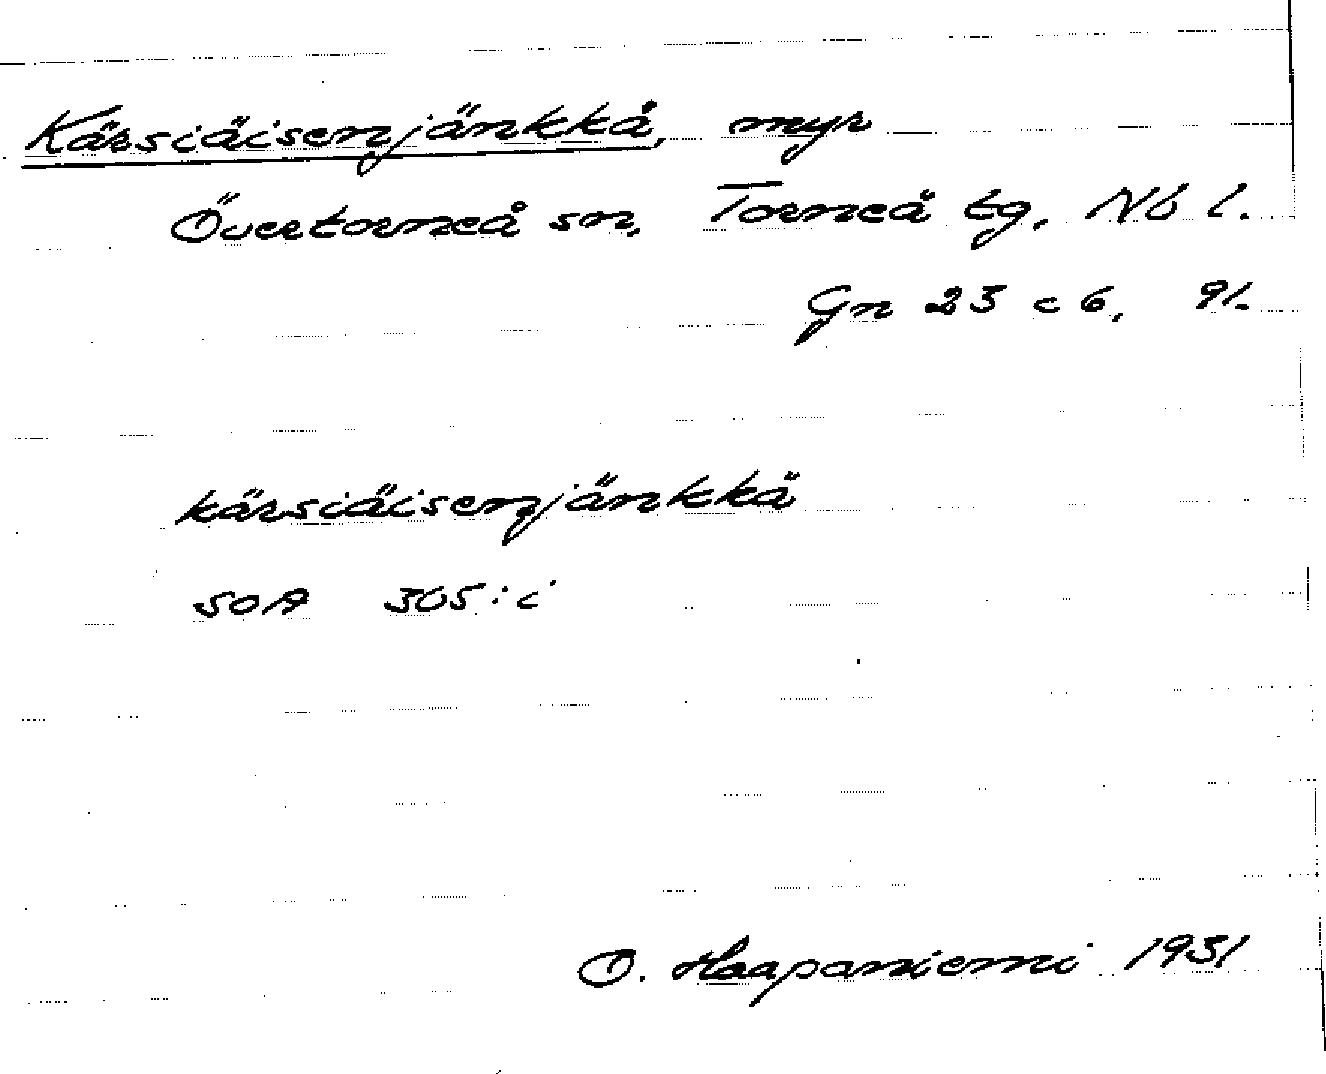 Kärsiäisenjänkkä, myr
Övertorneå sn, Torneå tg, Nb l.
Gn 23 c 6, 91.
kärsiäisenjänkkä
SOA 305:i
O. Haapaniemi 1931